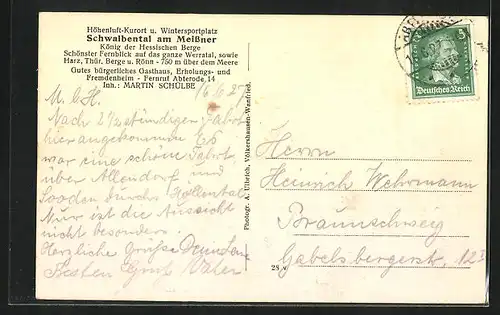 Höhenluft-Kurort u. Wintersportplatz
Schwalbental am Meißner
König der Hessischen Berge
Schönster Fernblick auf das ganze Werratal, sowie
Harz, Thür. Berge u. Rhön - 750 m über dem Meere
Gutes bürgerliches Gasthaus, Erholungs- und
Fremdenheim - Fernruf Abterode 14
Inh.: MARTIN SCHÜLBE
16/6 27
M. l. H.
Nach 2½ stündiger Fahrt
hier angekommen Es
war eine schöne Fahrt,
über Allendorf und
Sooden durchs Höllental.
Nur ist die Aussicht
nicht besonders.
Herzliche Grüße
Besten Gruß Vater
Photogr. A. Ullrich, Völkershausen-Wanfried.
28 v
5
Deutsches Reich
Herrn
Heinrich Wehrmann
Braunschweig
Gabelsbergerstr. 123